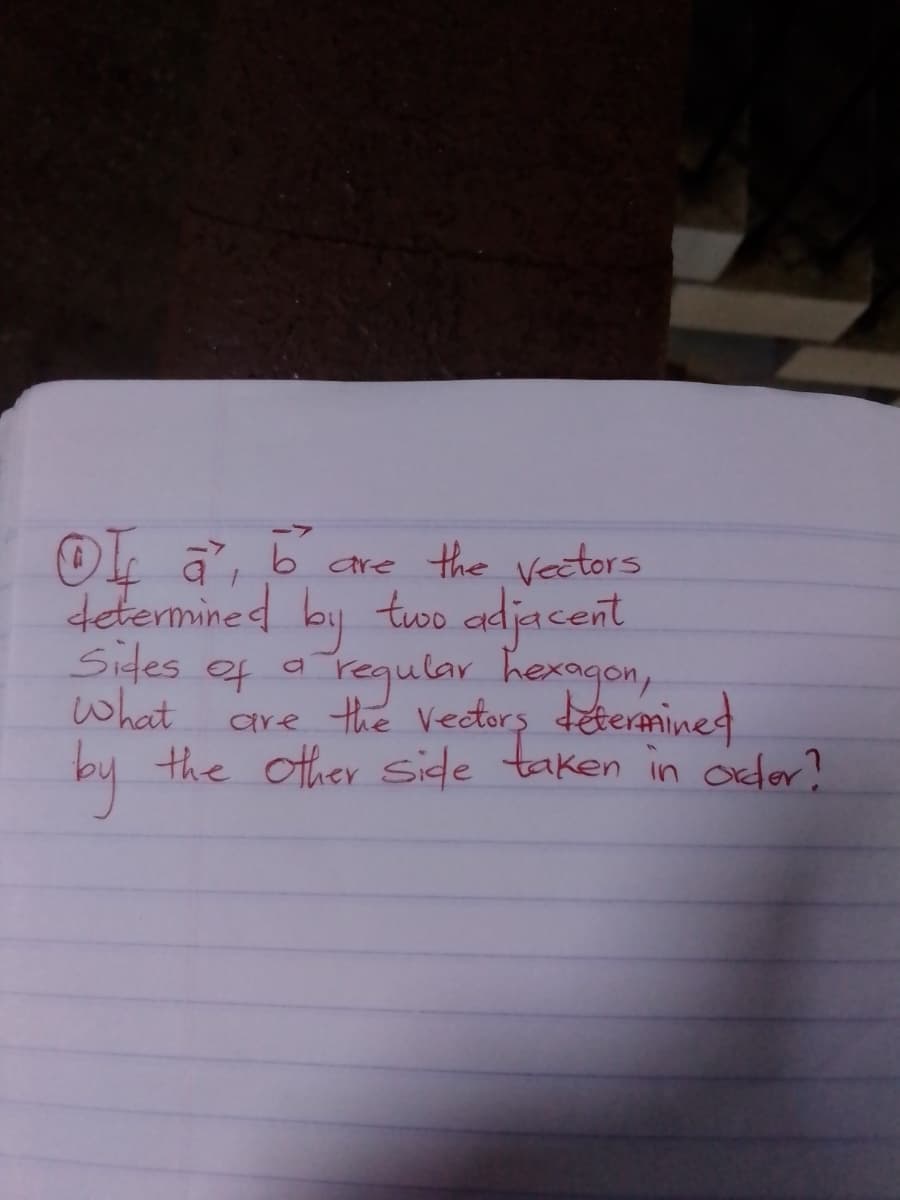 ① If a⃗, b⃗ are the vectors
determined by two adjacent
Sides of a regular hexagon,
What are the vectors determined
by the other side taken in order?